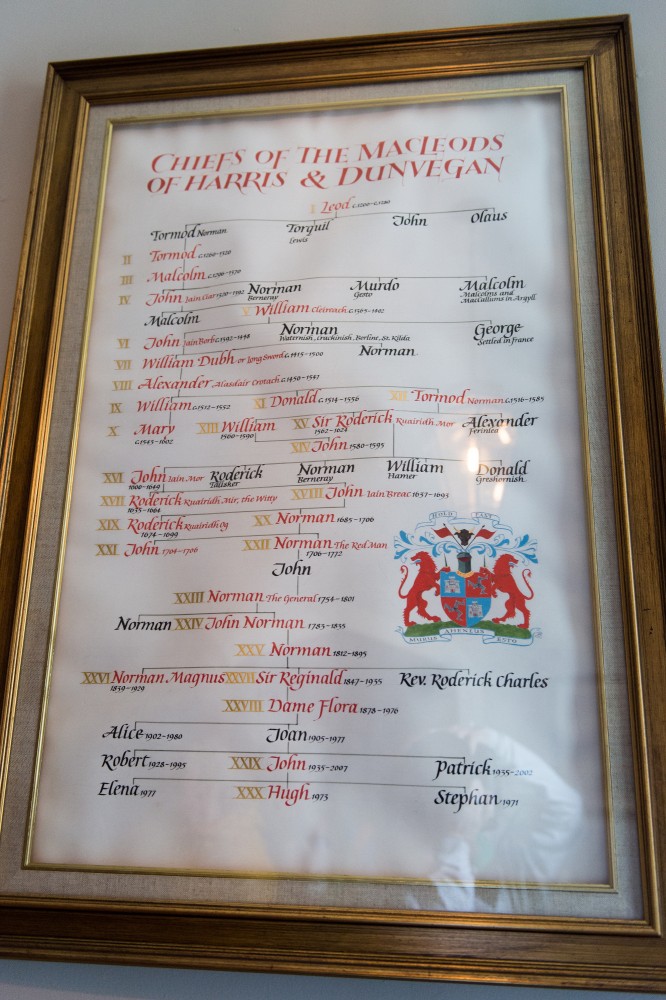 CHIEFS OF THE MACLEODS
OF HARRIS & DUNVEGAN
I Leod c.1200-c.1280
Tormod Norman Torquil John Olaus
Lewis
II Tormod c.1260-1320
III Malcolm c.1296-1370
IV John Iain Ciar 1320-1392 Norman Murdo Malcolm
Berneray Gesto Malcolms and
MacCallums in Argyll
Malcolm V William Cleireach c.1365-1402
VI John Iain Borb c.1392-1448 Norman George
Waternish, Berline, St. Kilda Settled in France
VII William Dubh or Long Sword c.1415-1500 Norman
VIII Alexander Alasdair Crotach c.1450-1547
IX William c.1512-1552 XI Donald c.1514-1556 XII Tormod Norman c.1516-1585
X Mary XIII William XV Sir Roderick Ruairidh Mor Alexander
c.1543-1602 1560-1590 1562-1624 Ferinlea
XIV John 1580-1595
XVI John Iain Mor Roderick Norman William Donald
1600-1649 Talisker Berneray Hamer Greshornish
XVII Roderick Ruairidh Mir, the Witty XVIII John Iain Breac 1637-1693
1635-1664
XIX Roderick Ruairidh Og XX Norman 1685-1706
1674-1699
XXI John 1704-1706 XXII Norman The Red Man
1706-1772
John
XXIII Norman The General 1754-1801
Norman XXIV John Norman 1783-1835
XXV Norman 1812-1895
XXVI Norman Magnus XXVII Sir Reginald 1847-1935 Rev. Roderick Charles
1839-1929
XXVIII Dame Flora 1878-1976
Alice 1902-1980 Joan 1905-1977
Robert 1928-1995 XXIX John 1935-2007 Patrick 1935-2002
Elena 1977 XXX Hugh 1973 Stephan 1971
HOLD FAST
MURUS AHENEUS ESTO